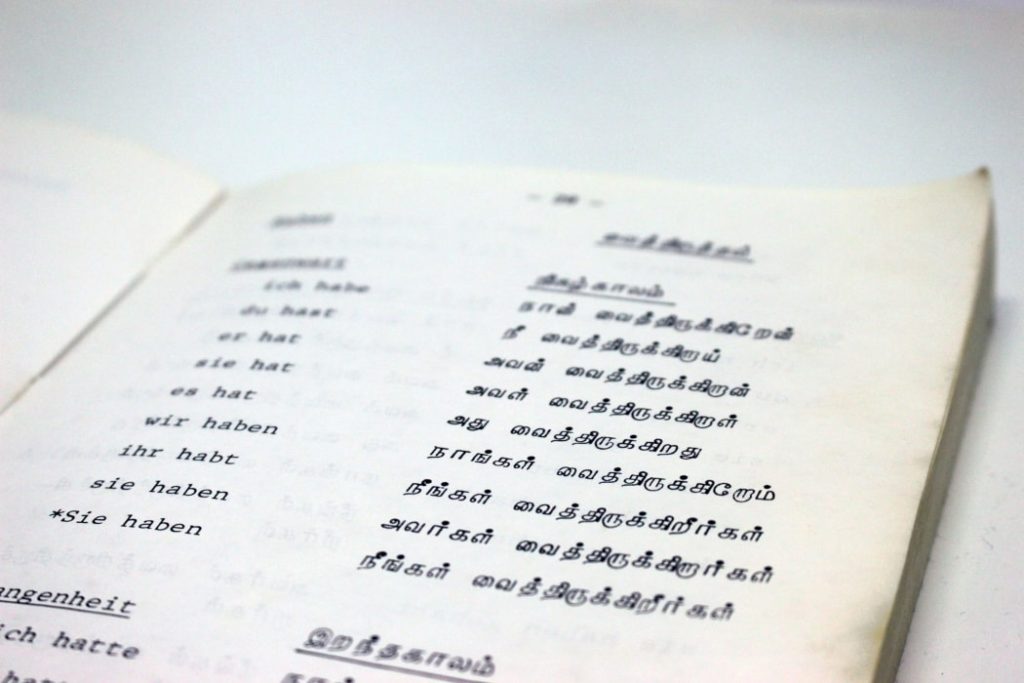 வைத்திருத்தல்
நிகழ் காலம்
ich habe நான் வைத்திருக்கிறேன்
du hast நீ வைத்திருக்கிறாய்
er hat அவன் வைத்திருக்கிறான்
sie hat அவள் வைத்திருக்கிறாள்
es hat அது வைத்திருக்கிறது
wir haben நாங்கள் வைத்திருக்கிறோம்
ihr habt நீங்கள் வைத்திருக்கிறீர்கள்
sie haben அவர்கள் வைத்திருக்கிறார்கள்
*Sie haben நீங்கள் வைத்திருக்கிறீர்கள்
angenheit இறந்தகாலம்
ich hatte